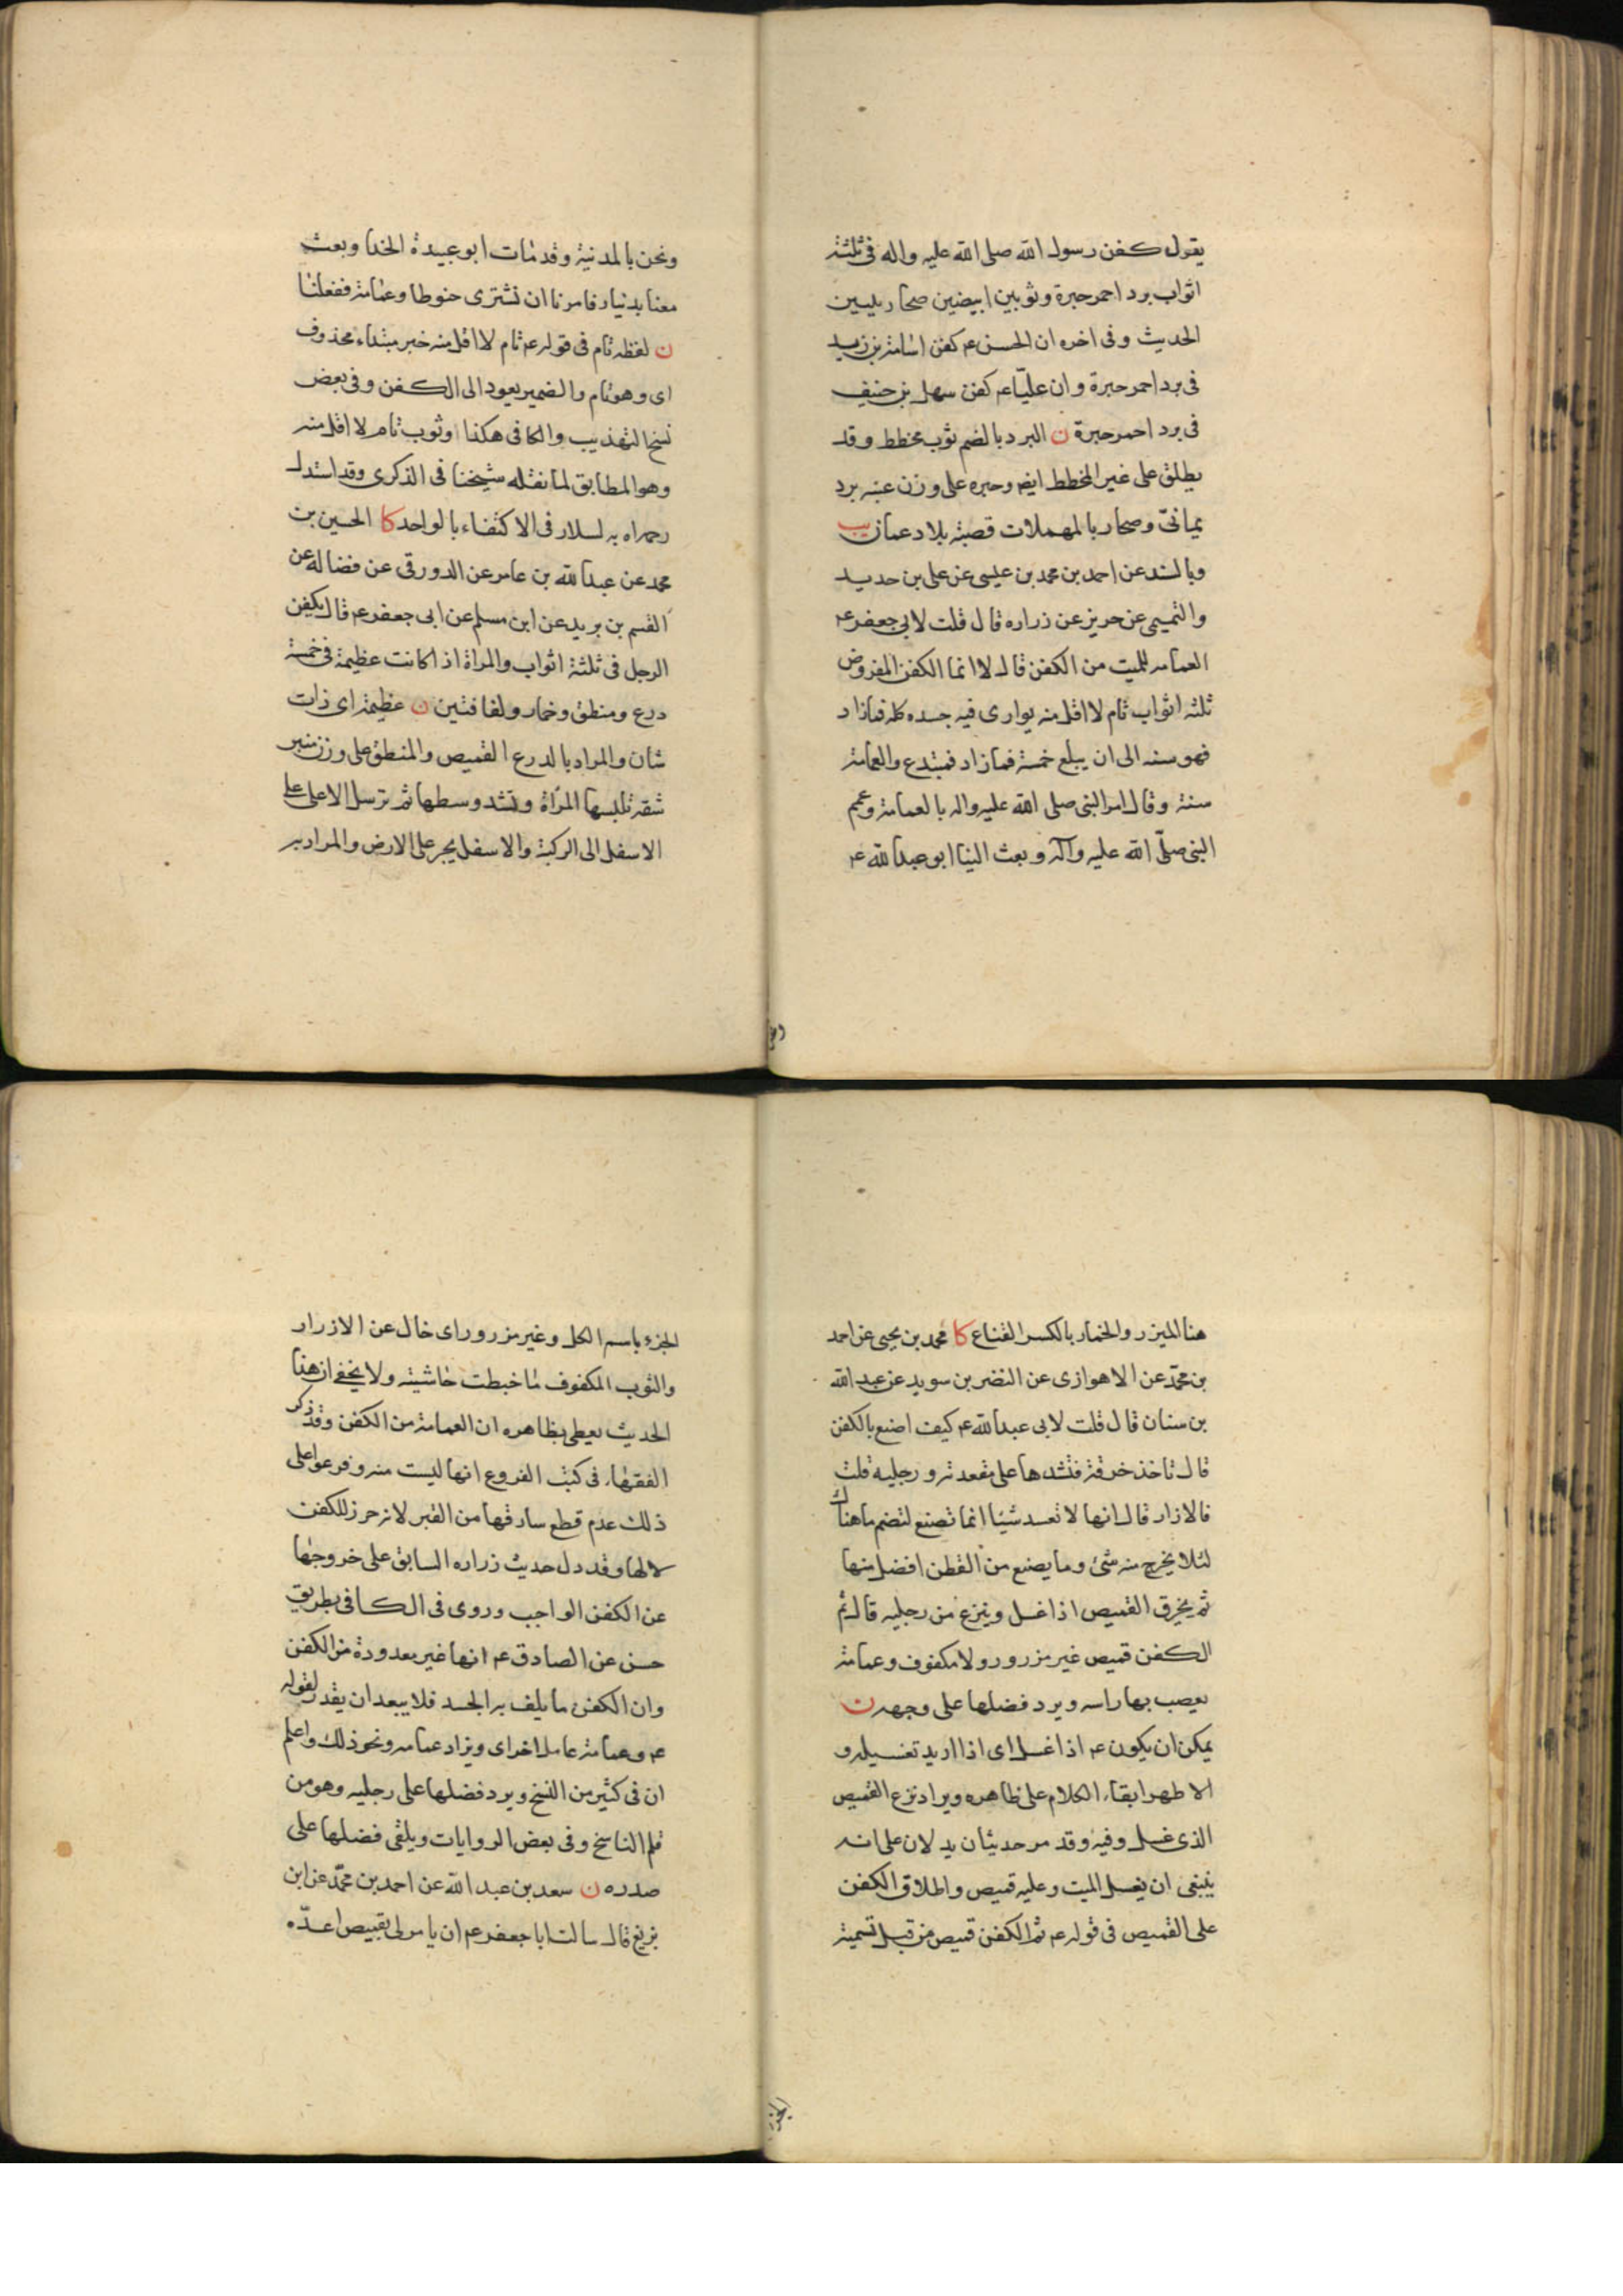 يقول كفن رسول الله صلى الله عليه واله فى ثلثة
اثواب برد احمر حبرة وثوبين ابيضين صحاريين
الحديث وفى اخره ان الحسن ع كفن اسامة بن زيد
فى برد احمر حبرة وان عليّا ع كفن سهل بن حنيف
فى برد احمر حبرة ن البرد بالضم ثوب مخطط وقد
يطلق على غير المخطط ايضا وحبره على وزن عنبه برد
يمانىّ وصحار بالمهملات قصبة بلاد عمان يب
وبالسند عن احمد بن محمد بن عيسى عن على بن حديد
والتميمى عن حريز عن زراره قال قلت لابى جعفر ع
العمامه للميت من الكفن قال لا انما الكفن المفروض
ثلثه اثواب تام لا اقل منه يوارى فيه جسده كله فمازاد
فهو سنه الى ان يبلغ خمسة فمازاد فمبتدع والعمامة
سنة وقال امر النبى صلى الله عليه واله بالعمامة وعمم
النبى صلّى الله عليه وآله وبعث الينا ابو عبدالله ع
ونحن
ونحن بالمدنية وقد مات ابو عبيدة الحذا وبعث
معنا بدنيار فامرنا ان نشترى حنوطا وعمامة ففعلنا
ن لفظه تام فى قوله ع تام لا اقل منه خبر مبتداء محذوف
اى وهو تام والضمير يعود الى الكفن وفى بعض
نسخ التهذيب والكافى هكذا او ثوب تام لا اقل منه
وهو المطابق لما نقله شيخنا فى الذكرى وقد استدل
رحمه الله به لسلار فى الاكتفاء بالواحد كا الحسين بن
محمد عن عبدالله بن عامر عن الدورقى عن فضاله عن
القسم بن بريد عن ابن مسلم عن ابى جعفر ع قال يكفن
الرجل فى ثلثة اثواب والمراة اذا كانت عظيمة فى خمسة
درع ومنطق وخمار ولفافتين ن عظيمة اى ذات
شان والمراد بالدرع القميص والمنطق على وزن منبر
شقه تلبسها المرأة وتشد وسطها ثم ترسل الاعلى على
الاسفل الى الركبة والاسفل يجر على الارض والمراد به
هنا الميزر والخمار بالكسر القناع كا محمد بن يحيى عن احمد
بن محمّد عن الاهوازى عن النضر بن سويد عن عبد الله
بن سنان قال قلت لابى عبدالله ع كيف اصنع بالكفن
قال تاخذ خرقة فتشدها على مقعدته ورجليه قلت
فالازار قال انها لا تعد شيئا انما تصنع لتضم ما هناك
لئلا يخرج منه شئ وما يصنع من القطن افضل منها
ثم يخرق القميص اذا غسل وينزع من رجليه قال ثم
الكفن قميص غير مزرور ولا مكفوف وعمامة
يعصب بها راسه ويرد فضلها على وجهه ن
يمكن ان يكون ع اذا غسل اى اذا اريد تغسيله و
الاظهر ابقاء الكلام على ظاهره ويراد نزع القميص
الذى غسل وفيه وقد مر حديثان يدلان على انه
ينبغى ان يغسل الميت وعليه قميص واطلاق الكفن
على القميص فى قوله ع ثم الكفن قميص من قبل تسمية
الجزء
الجزء باسم الكل وغير مزرور اى خال عن الازرار
والثوب المكفوف ما خيطت حاشيته ولا يخفى ان هذا
الحديث يعطى بظاهره ان العمامة من الكفن وقد ذكر
الفقهاء فى كتب الفروع انها ليست منه وفرعوا على
ذلك عدم قطع سارقها من القبر لانه حرز للكفن
لا لها وقد دل حديث زراره السابق على خروجها
عن الكفن الواجب وروى فى الكافى بطريق
حسن عن الصادق ع انها غير معدودة من الكفن
وان الكفن ما يلف به الجسد فلا يبعد ان يقدر لقوله
ع وعمامة عامل اخر اى ويزاد عمامه ونحو ذلك واعلم
ان فى كثير من النسخ ويرد فضلها على رجليه وهو من
قلم الناسخ وفى بعض الروايات ويلقى فضلها على
صدره ن سعد بن عبد الله عن احمد بن محمّد عن ابن
بزيغ قال سالت ابا جعفر ع ان يا مرلى بقميص اعدّه